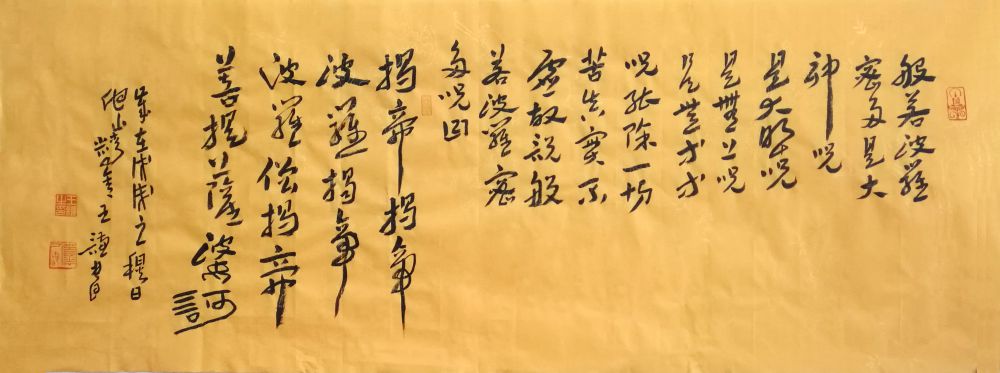 般若波羅
密多是大
神呪
是大明呪
是無上呪
是無等等
呪能除一切
苦真實不
虛故說般
若波羅密
多呪曰
揭帝揭帝
波羅揭帝
波羅僧揭帝
菩提薩婆訶
歲在戊戌之日
山王書